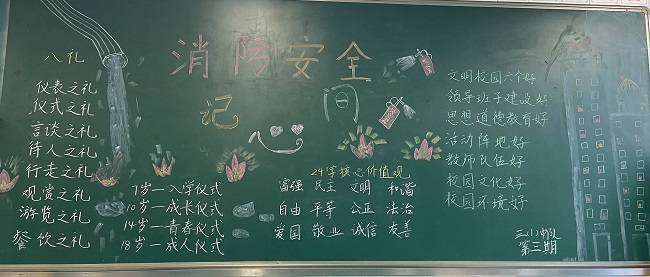 消防安全
记心间
八礼
仪表之礼
仪式之礼
言谈之礼
待人之礼
行走之礼
观赏之礼
游览之礼
餐饮之礼
7岁—入学仪式
10岁—成长仪式
14岁—青春仪式
18岁—成人仪式
24字核心价值观
富强 民主 文明 和谐
自由 平等 公正 法治
爱国 敬业 诚信 友善
文明校园六个好
领导班子建设好
思想道德教育好
活动阵地好
教师队伍好
校园文化好
校园环境好
第三期